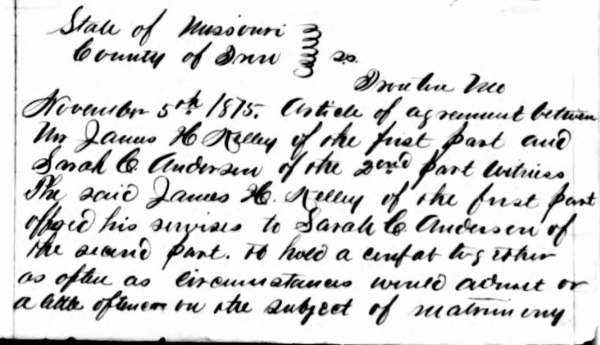 State of Missouri
County of Iron } s.s.
Ironton Mo
November 5th 1875. Article of agreement between
Mr James H Kelley of the first part and
Sarah C. Anderson of the 2nd part Witness
The said James H. Kelley of the first part
offered his servises to Sarah C Anderson of
the second part. to hold a confab together
as often as circumstances would admit or
a little oftener on the subject of matrimony